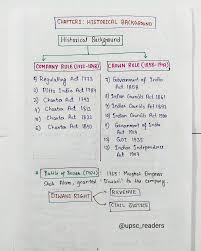 CHAPTER 1: HISTORICAL BACKGROUND
Historical Background
COMPANY RULE (1773-1858)
1) Regulating Act 1773
2) Pitts India Act 1784
3) Charter Act 1793
4) Charter Act 1813
5) Charter Act 1833
6) Charter Act 1853
CROWN RULE (1858-1947)
1) Government of India Act 1858
2) Indian Councils Act 1861
3) Indian Councils Act 1892
4) Indian Council Act 1909
5) Government of India Act 1919
6) GOI 1935
7) Indian Independence Act 1947
Battle of Buxar (1764)
1765: Mughal Emperor
Shah Alam, granted "Diwani" to the company.
DIWANI RIGHT
REVENUE
CIVIL JUSTICE
@upsc_readers